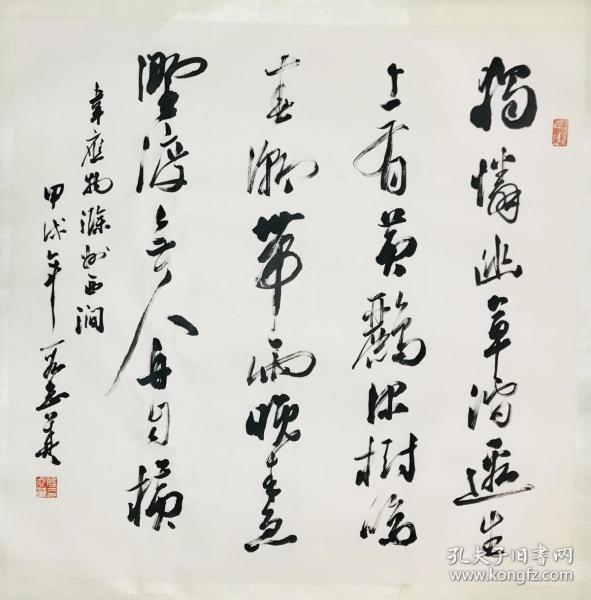 獨憐幽草澗邊生
上有黄鸝深樹鳴
春潮帶雨晚来急
野渡無人舟自横
韋應物滁州西澗
甲戌年
孔夫子旧书网
www.kongfz.com